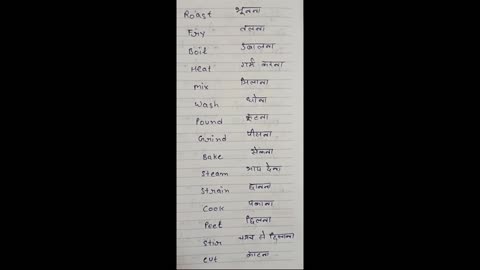 Roast भूनना
Fry तलना
Boil उबालना
Heat गर्म करना
Mix मिलाना
Wash धोना
Pound कूटना
Grind पीसना
Bake सेकना
Steam भाप देना
Strain छानना
Cook पकाना
Peel छिलना
Stir चम्मच से हिलाना
Cut काटना